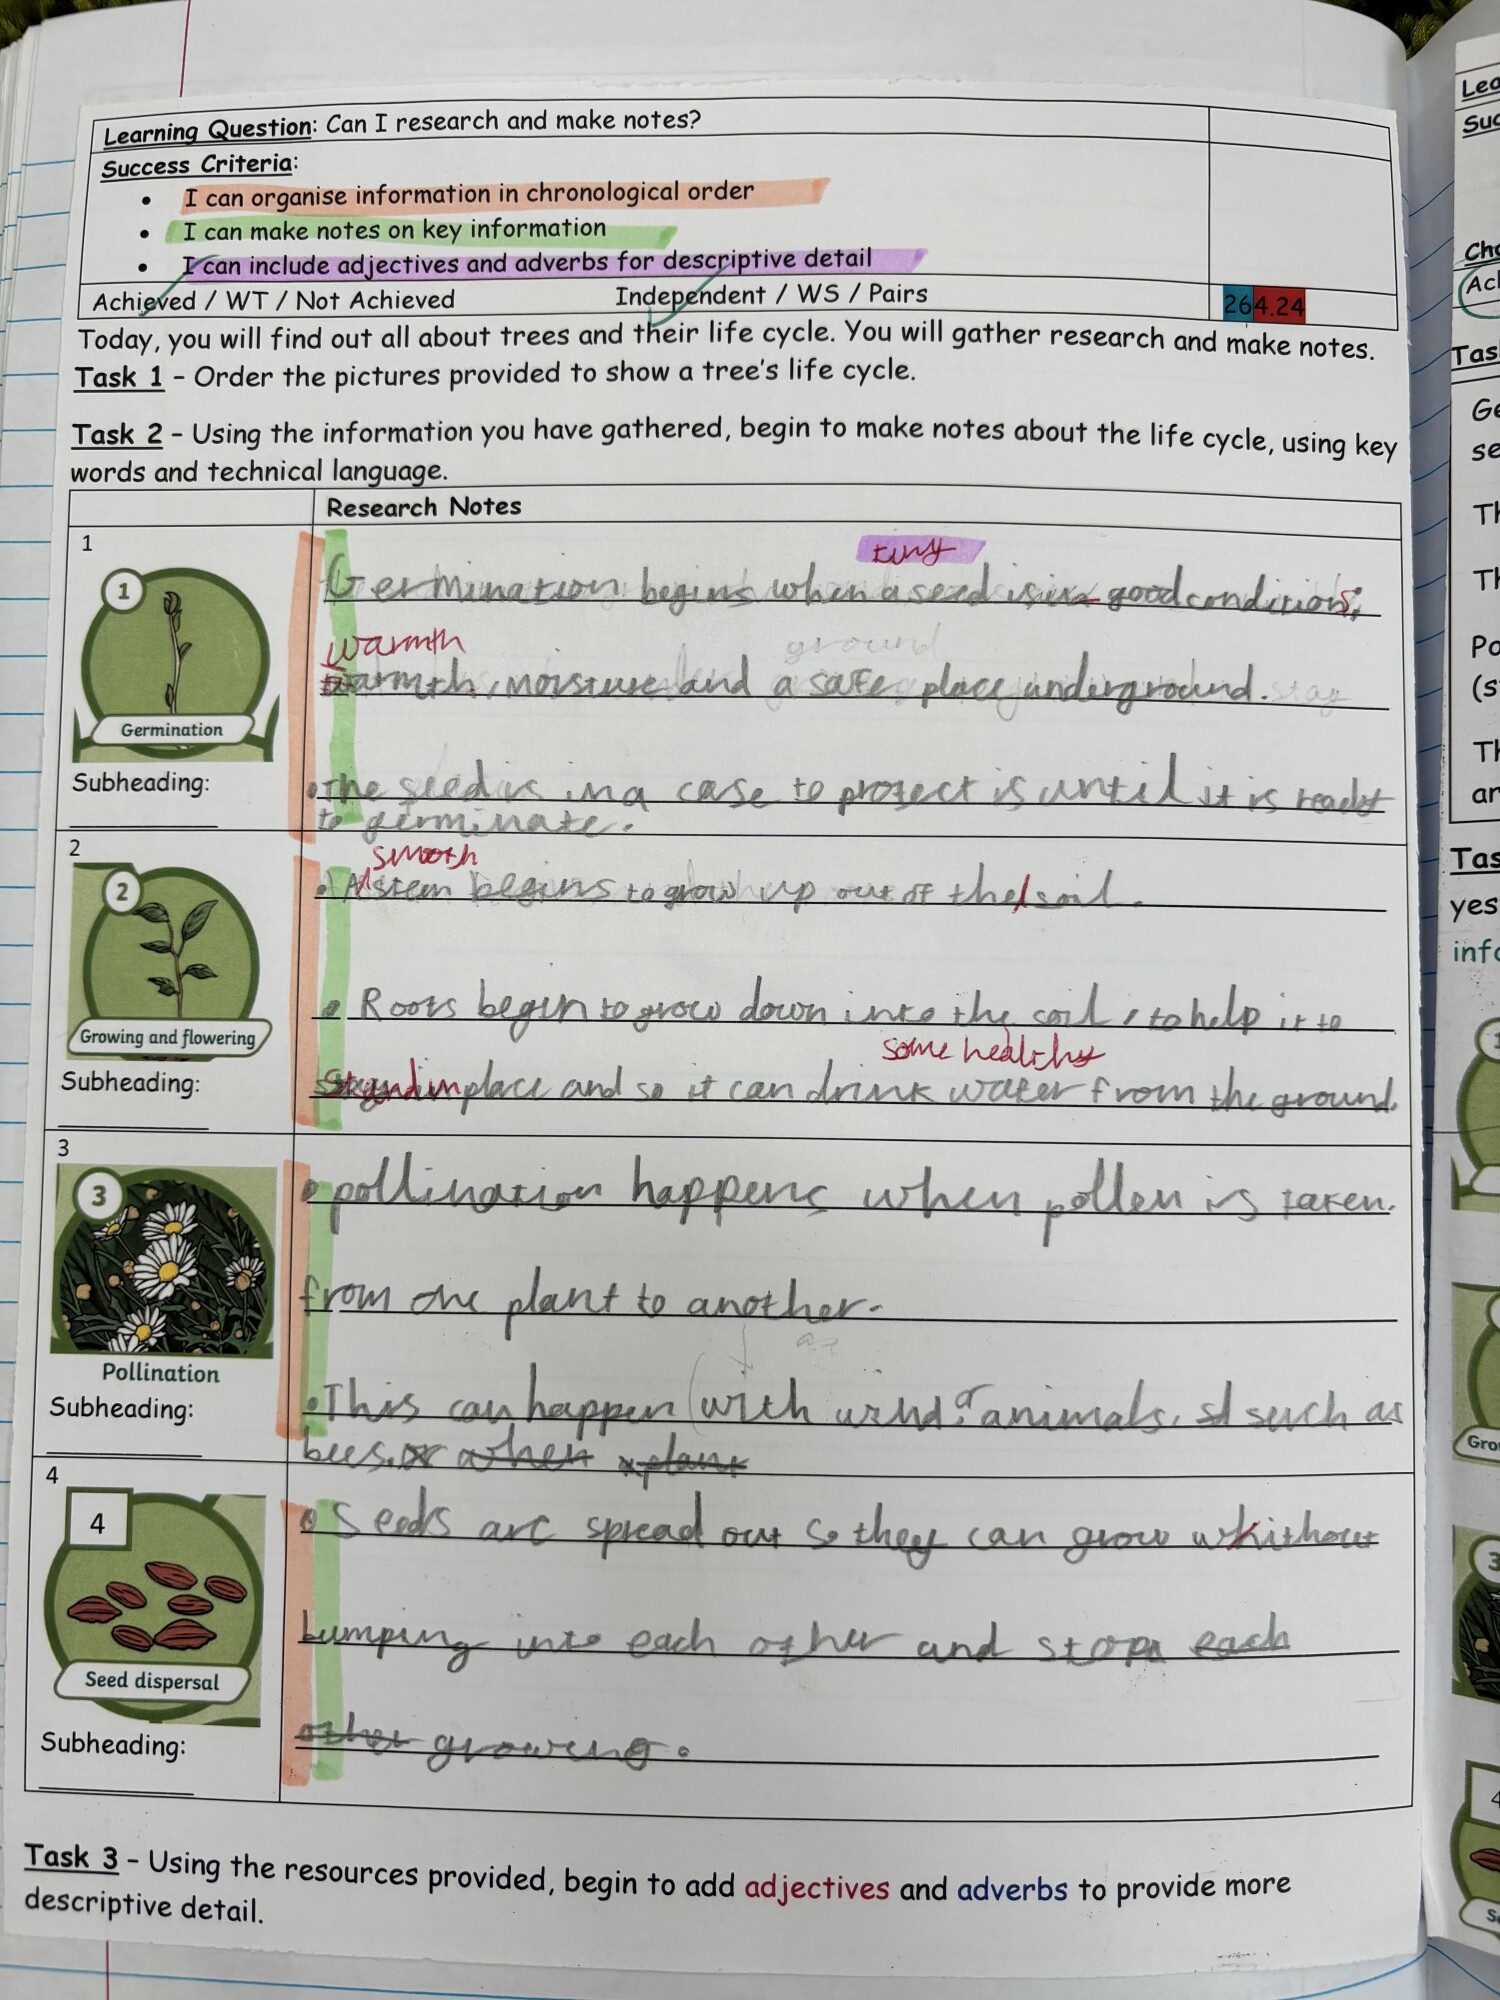 Learning Question: Can I research and make notes?
Success Criteria:
• I can organise information in chronological order
• I can make notes on key information
• I can include adjectives and adverbs for descriptive detail
Achieved / WT / Not Achieved Independent / WS / Pairs 264.24
Today, you will find out all about trees and their life cycle. You will gather research and make notes.
Task 1 – Order the pictures provided to show a tree's life cycle.
Task 2 – Using the information you have gathered, begin to make notes about the life cycle, using key
words and technical language.
Research Notes
1
1
Germination
Subheading:
tiny
Germination begins when a seed is in good conditions,
warmth
warmth, moisture and a safe place underground.
ground
stay
• The seed is in a case to protect is until it is
to germinate.
2
2
Growing and flowering
Subheading:
smooth
• A stem begins to grow up out of the soil.
• Roots begin to grow down into the soil, to help it to
some healthy
stand in place and so it can drink water from the ground.
3
3
Pollination
Subheading:
• pollination happens when pollen is taken.
from one plant to another.
• This can happen (with wind or animals, such as
bees. when plant
4
4
Seed dispersal
Subheading:
• Seeds are spread out so they can grow whithout
bumping into each other and stop each
other growing.
Task 3 – Using the resources provided, begin to add adjectives and adverbs to provide more
descriptive detail.
Lea
Suc
Cha
Ach
Tas
Ge
se
Th
Th
Po
(s
Th
ar
Tas
yes
info
1
Gro
3
4
Se